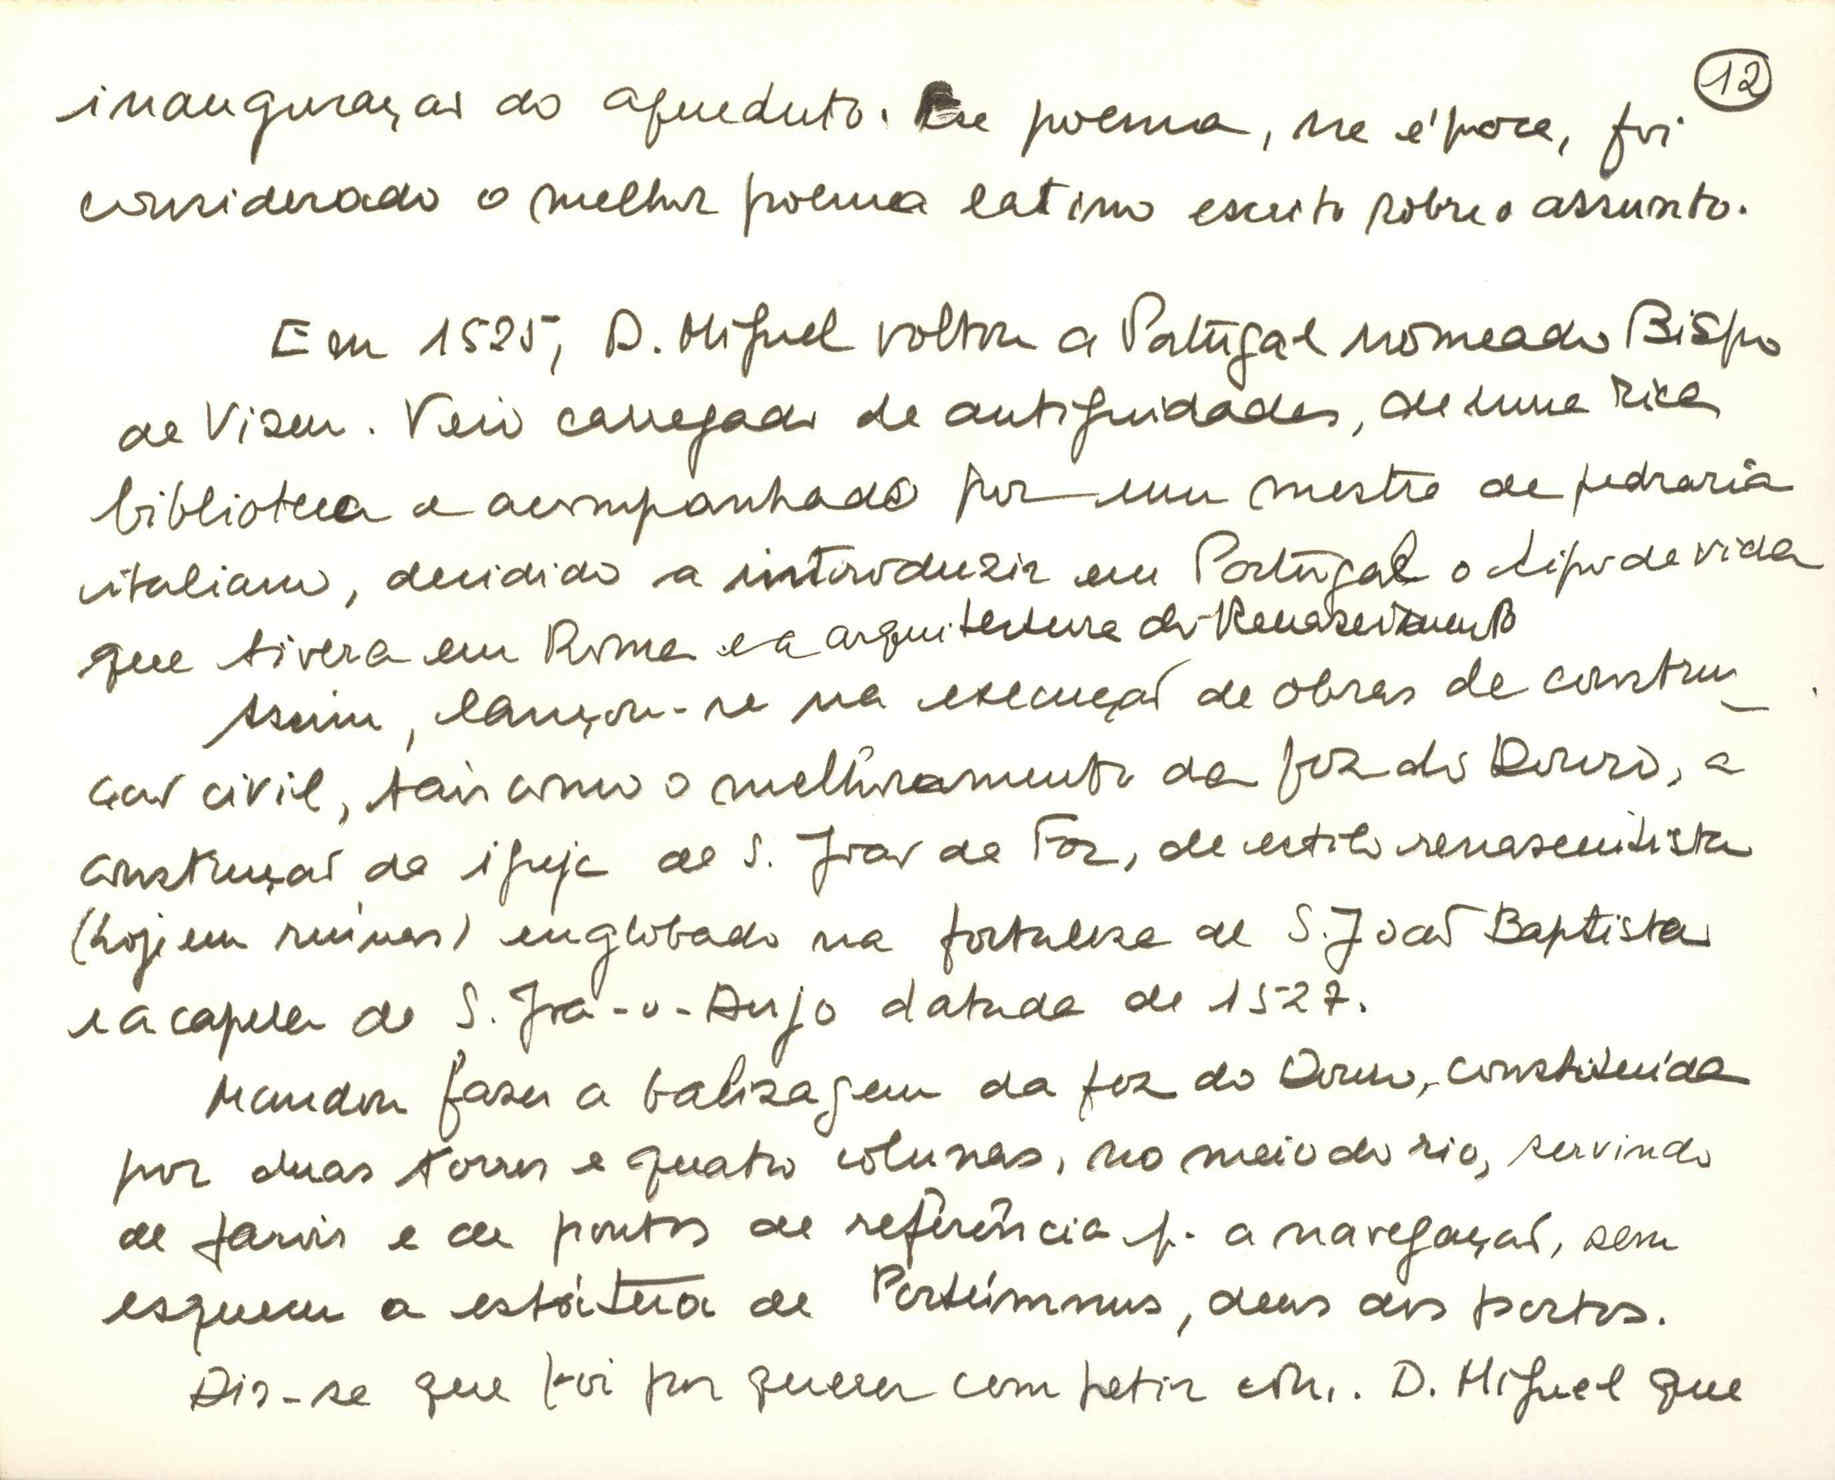 12
inauguração do aqueduto. Ese poema, na época, foi
considerado o melhor poema latino escrito sôbre o assunto.
Em 1525, D. Miguel voltou a Portugal nomeado Bispo
de Viseu. Veio carregado de antiguidades, de uma rica
biblioteca e acompanhado por um mestre de pedraria
italiano, decidido a introduzir em Portugal o tipo de vida
que tivera em Roma e a arquitectura do Renascimento
Assim, lançou-se na execução de obras de constru_
ção civil, tais como o melhoramento da foz do Douro, a
construção da igreja de S. João da Foz, de estilo renascentista
(hoje em ruínas) englobado na fortaleza de S. João Baptista
e a capela de S. Miguel-o-Anjo datada de 1527.
Mandou fazer a balizagem da foz do Douro, constituída
por duas torres e quatro colunas, no meio do rio, servindo
de farois e de pontos de referência p. a navegação, sem
esquecer a estátua de Portúmnus, deus dos portos.
Diz-se que foi por querer competir com. D. Miguel que